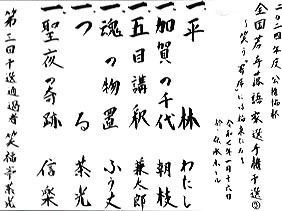 二〇二四年度 公推協杯
全国若手落語家選手権予選③
〜笑う「寄席」には福来たる〜
令和七年一月十六日
於・伝承ホール
一、平林 わたし
一、加賀の千代 朝枝
一、五目講釈 兼太郎
一、魂の物置 ふう丈
一、つる 茶光
一、聖夜の奇跡 信楽
第三回予選通過者 笑福亭茶光